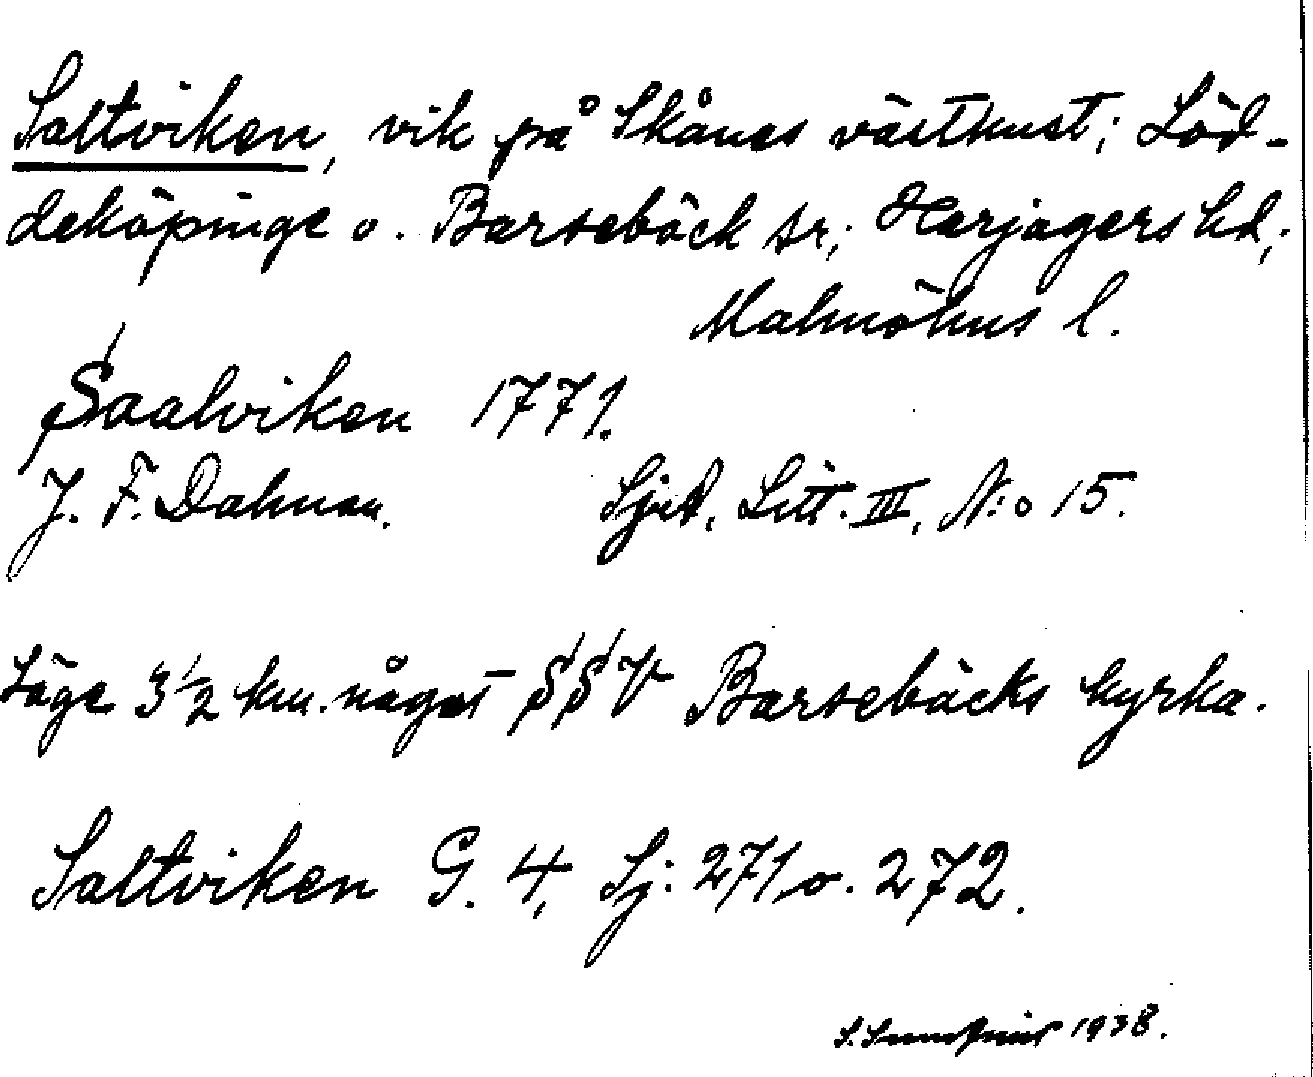 Saltviken, vik på Skånes västkust; Löd-
deköpinge o. Barsebäck sr; Harjagers hd;
Malmöhus l.
Saalviken 1771.
J. F. Dalman. Sjöt. Litt. III, N:o 15.
Läge 3 1/2 km. något SSV Barsebäcks kyrka.
Saltviken G. 4, Sj: 271 o. 272.
S. 1938.